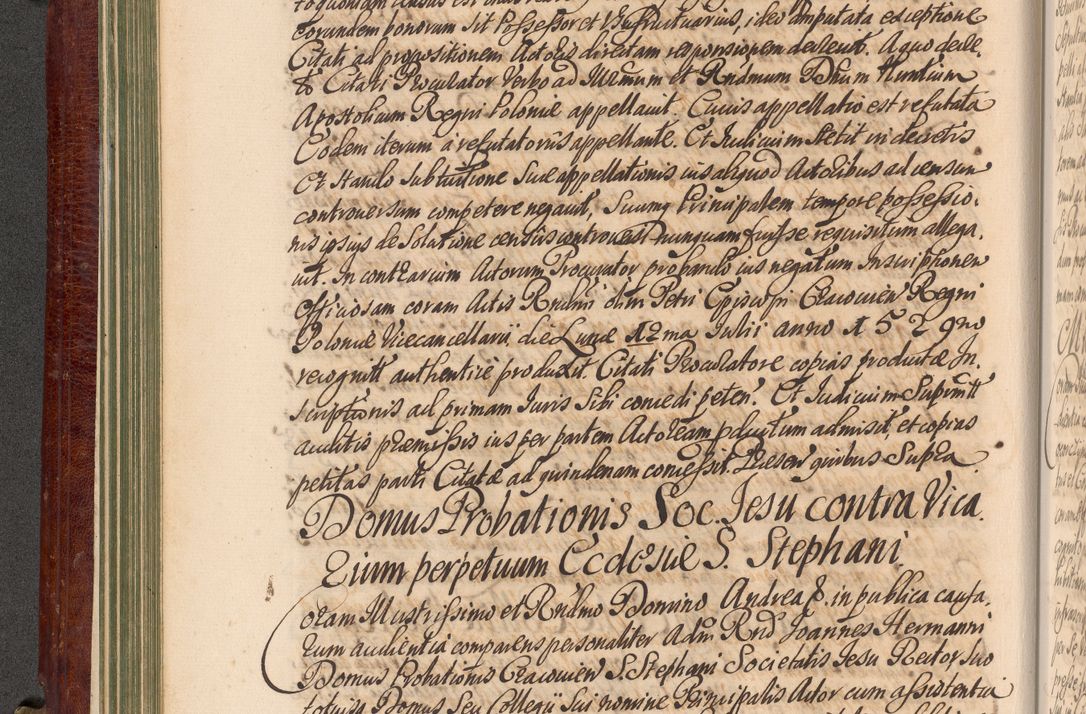 eorundem bonorum sit Possessor et Usufructuarius, ideo amputata exceptione
Citati ad propositionem Actoris directam responsionem decrevit. A quo decre
to Citati Procurator verbo ad Illmum et Rndmum Dnum Nuntium
Apostolicum Regni Poloniæ appellavit, Cuius appellatio est refutata
Eodem iterum à refutatoriis appellante. Et Iudicium stetit in decretis
Et stando sub tuitione suæ appellationis ius aliquod Actoribus ad censum
controversum competere negavit, Suumq Principalem tempore possessio.
nis ipsius de Solutione censûs controversi nunquam fuisse requisitum allega.
vit. In contrarium Actorum Procurator probando ius negatum Inscriptionem
Officiosam coram Actis Rndmi dñi Petri Episcopi Cracovien Regni
Poloniæ Vicecancellarii, die Lunæ 12ma Iulii anno 1529no
recognitt authenticè produxit. Citati Procuratore copias productæ In.
scriptionis ad primam Iuris Sibi concedi peten. Et Iudicium Suprintt
auditis præmissis ius per partem Actoream pductum admisit, et copias
petitas parti Citatæ ad quindenam concessit. Præsen quibus Supra
Domus Probationis Soc. Jesu contra Vica.
rium perpetuum Ecclesiæ S. Stephani
Coram Illustrissimo et Rndmo Domino Andrea E. in publica causa.
rum audientia comparens personaliter Adm Rnd Joannes Hermanni
Domus Probationis Cracovien S. Stephani Societatis Jesu Rector suo
totiusq Domus Seu Collegii Sui nomine Principalis Actor cum assistentia